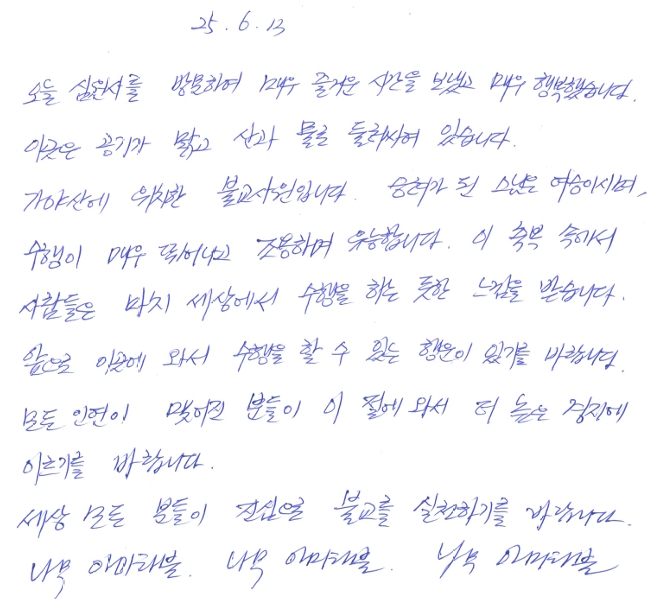 25. 6. 13
오늘 심원사를 방문하여 매우 즐거운 시간을 보냈고 매우 행복했습니다.
이곳은 공기가 맑고 산과 물로 둘러싸여 있습니다.
가야산에 위치한 불교사원입니다. 승려가 된 스님은 여승이시며,
수행이 매우 뛰어나고 조용하며 유능합니다. 이 축복 속에서
사람들은 마치 세상에서 수행을 하는 듯한 느낌을 받습니다.
앞으로 이곳에 와서 수행을 할 수 있는 행운이 있기를 바랍니다.
모든 인연이 맺어진 분들이 이 절에 와서 더 높은 경지에
이르기를 바랍니다.
세상 모든 분들이 진심으로 불교를 실천하기를 바랍니다.
나무 아미타불. 나무 아미타불. 나무 아미타불